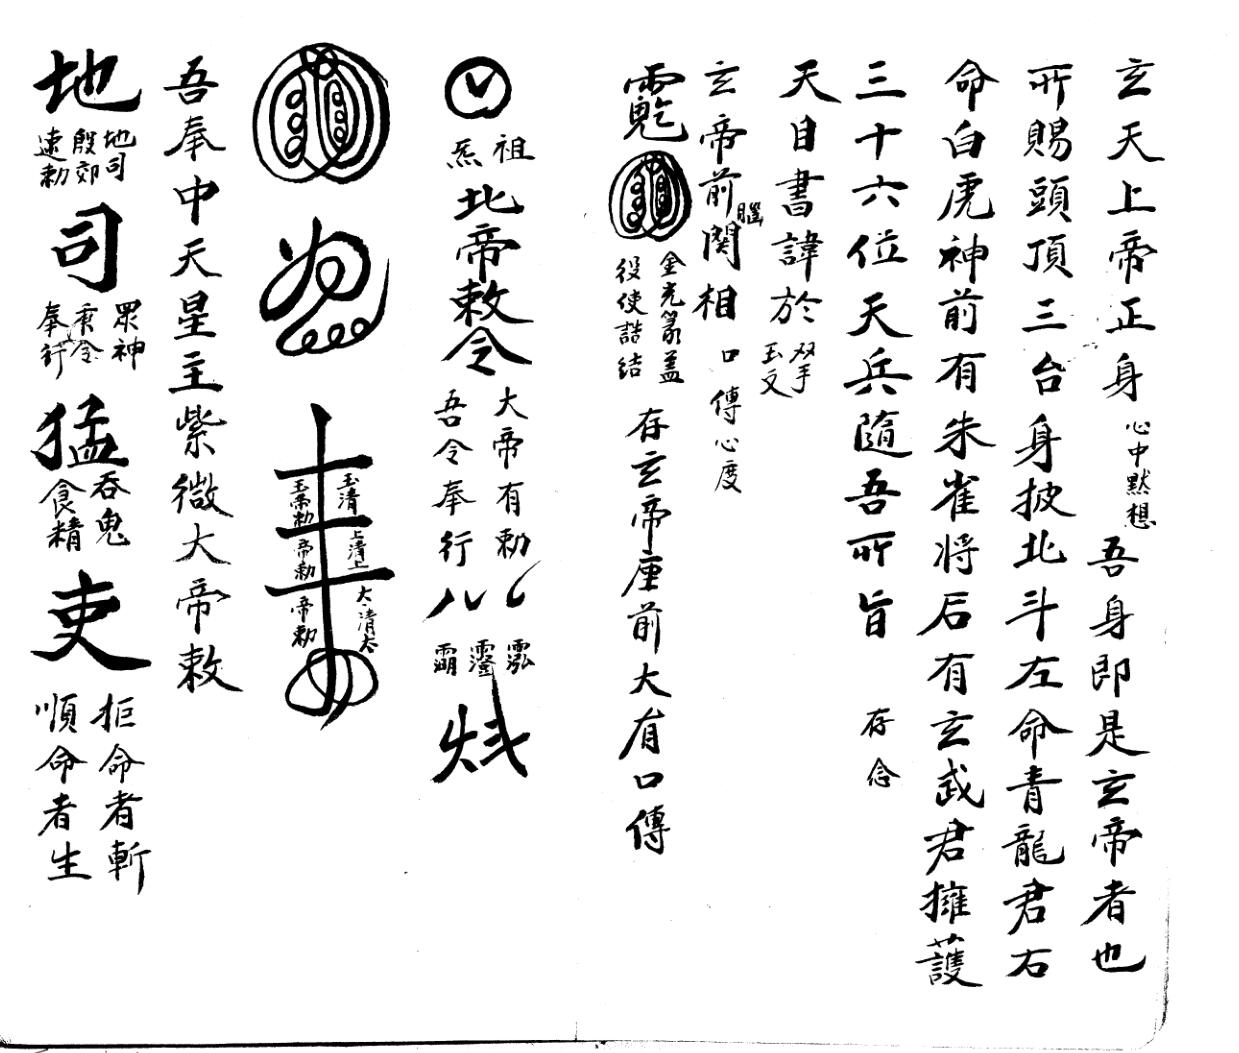 玄天上帝正身 心中默想 吾身即是玄帝者也
所賜頭頂三台身披北斗左命青龍君右
命白虎神前有朱雀將后有玄武君擁護
三十六位天兵隨吾所旨 存念
天目書諱於 双手 玉文
玄帝前 腦 関相 口傳心度
金光篆盖
役使諸结
存玄帝座前大有口傳
祖
炁
北帝敕令
大帝有勅
吾令奉行
玉清 上清上 大清大
玉帝勅 帝勅 帝勅
吾奉中天星主紫微大帝敕
地 地司 殷郊 速勅
司 眾神 秉令 奉行
猛 吞鬼 食精
吏 拒命者斬
順命者生